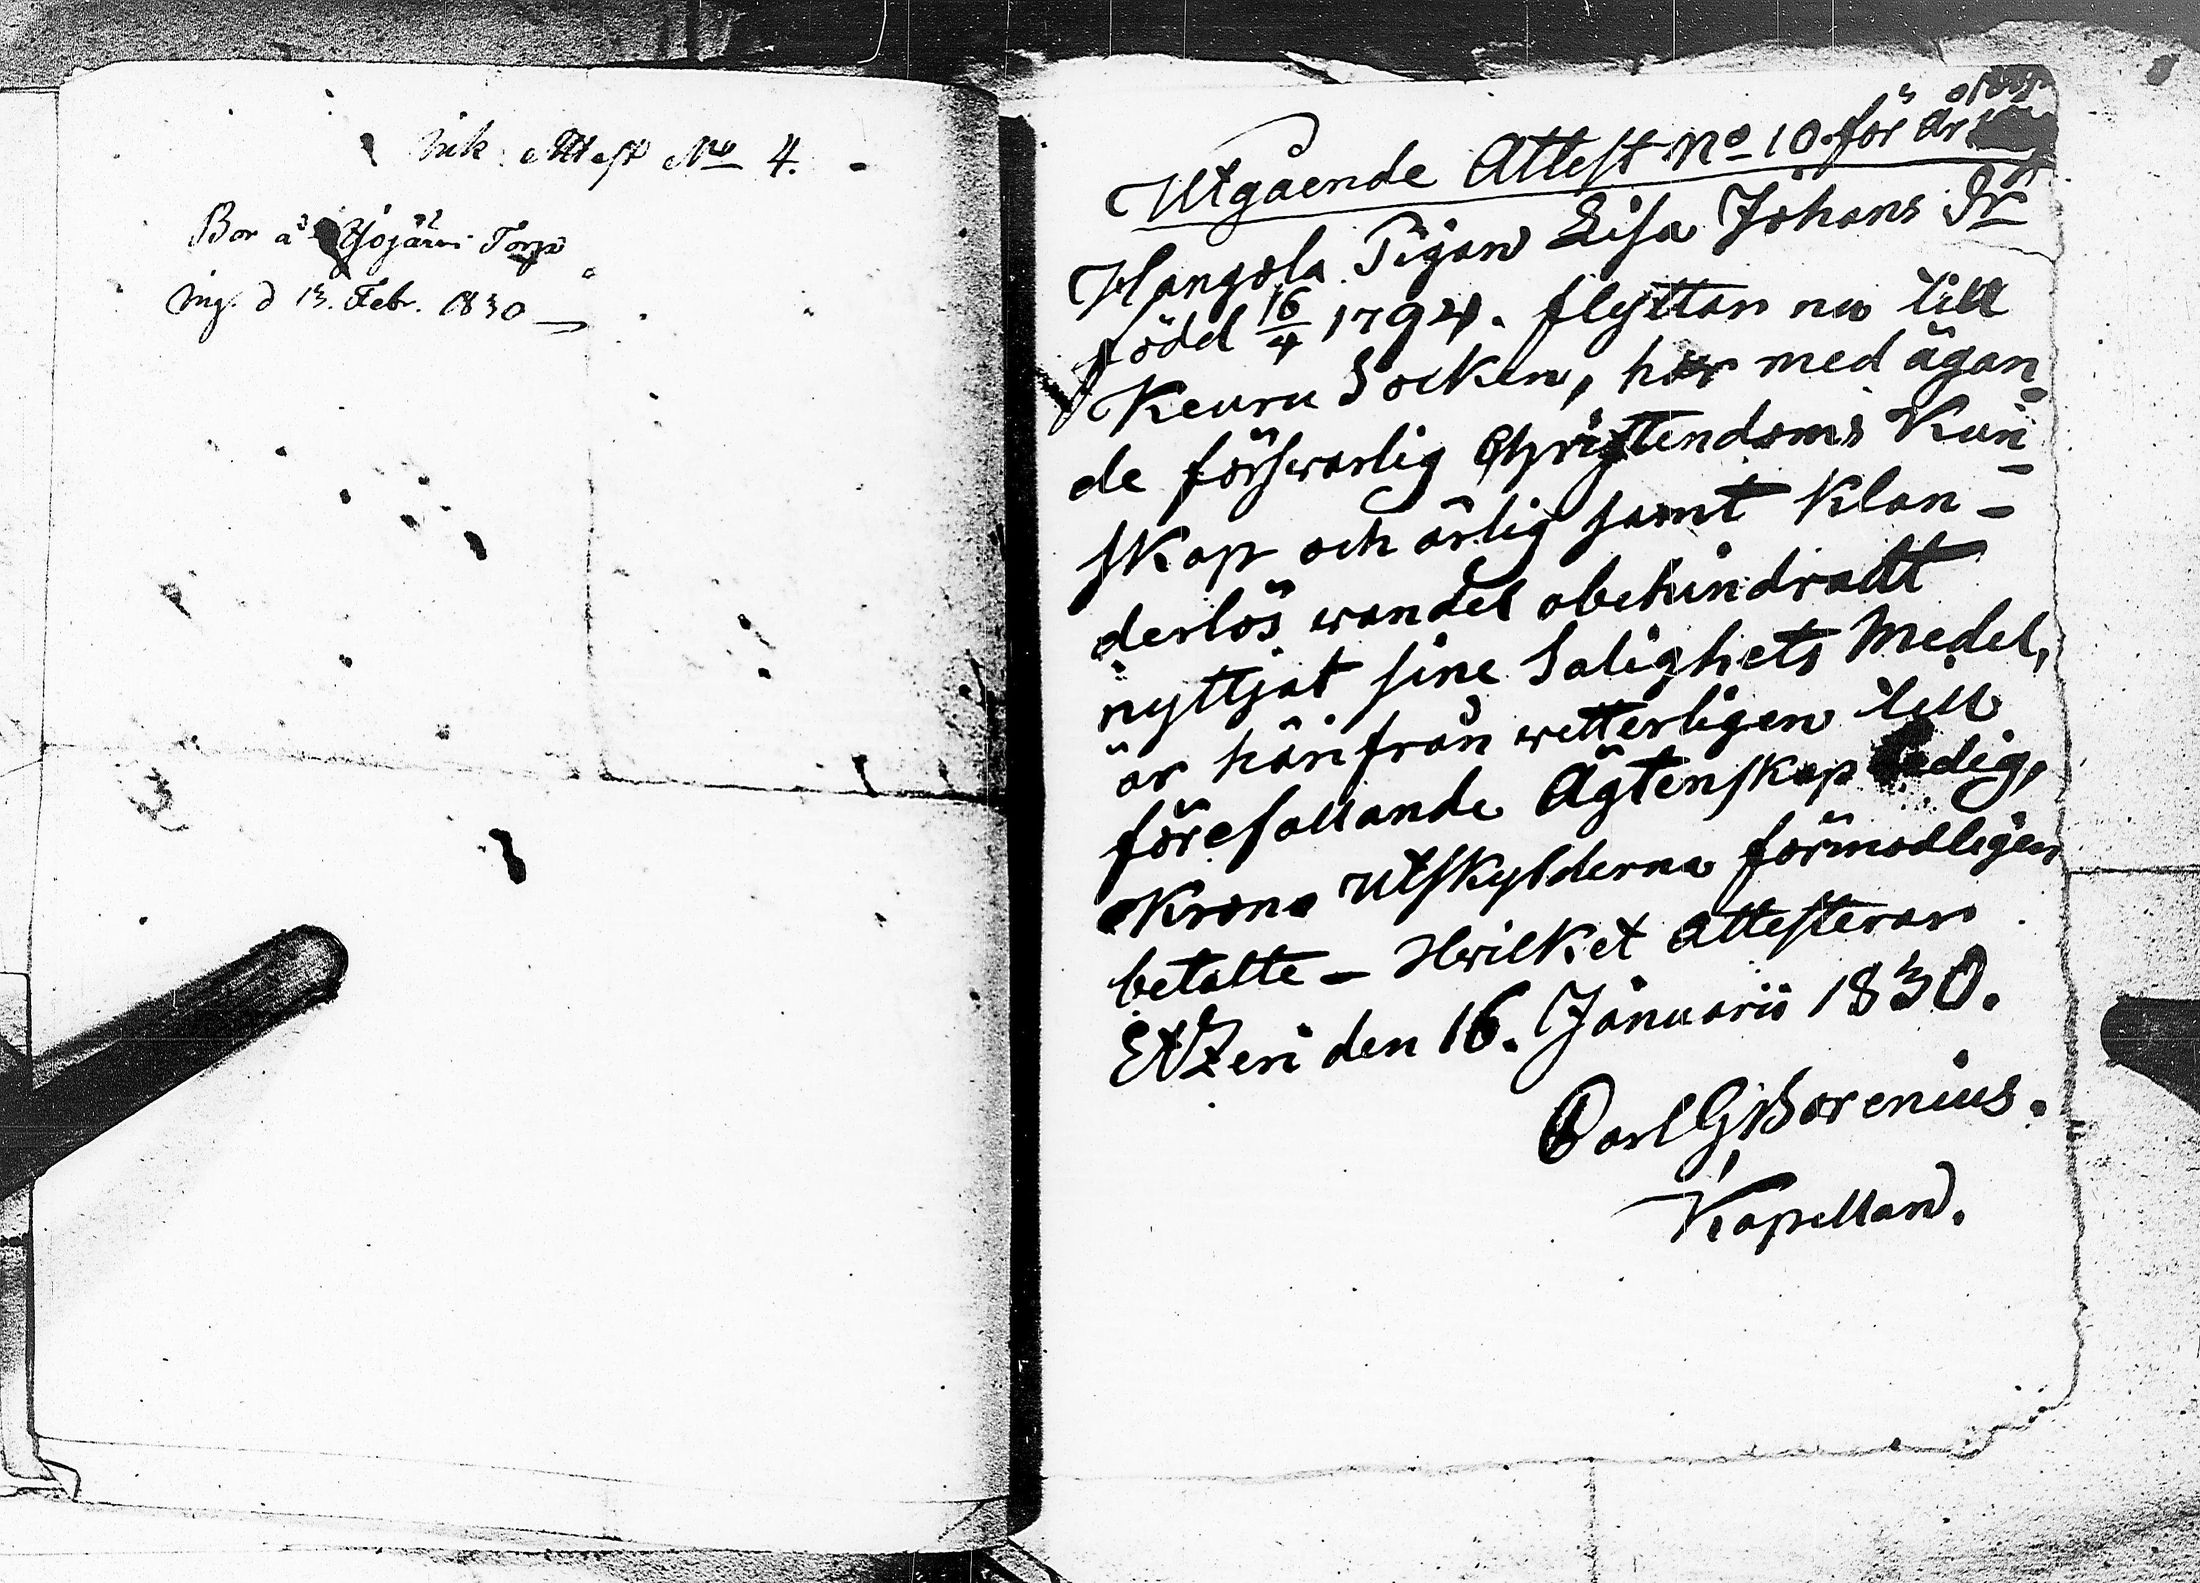 Ink. Attest No 4.
Bor å Yojärvi Torp
ing. d 13. Febr. 1830
Utgående Attest No 10. för år
Hangola Pigan Lisa Johans Dr
född 16/4 1794. flyttar nu till
Keuru Socken, har med ägan-
de förswarlig Christendoms Kun-
skap och ärlig samt klan-
derlös wandel obehindradt
nyttjat sine Salighets Medel,
är härifrån wetterligen till
förefallande Ägtenskap ledig,
Krono Utskylderna förmodligen
betalte – Hwilket attesterar
Etzeri den 16. Januarii 1830.
Carl G Borenius.
Kapellan.